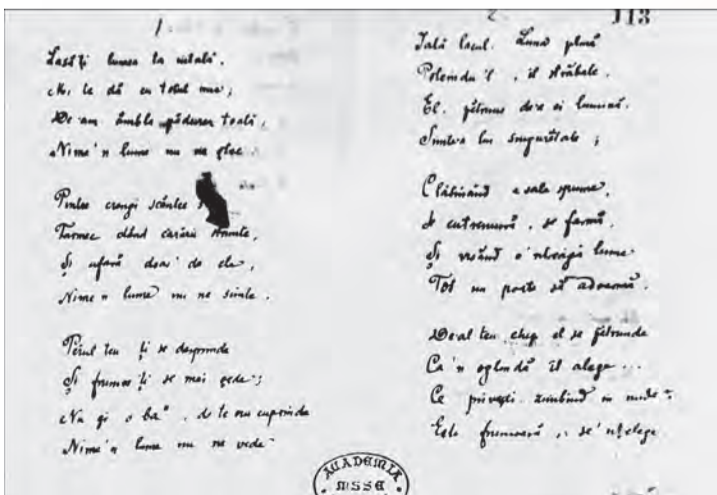 1
Lasă'ți lumea ta uitată,
Mi te dă cu totul mie,
De am îmbla pădurea toată,
Nime'n lume nu ne știe.
Printre crengi scântee
Farmec dând cărării strâmte,
Și afară doar' de ele,
Nime'n lume nu ne simte.
Părul tău ți se desprinde
Și frumos ți se mai șede;
Nu zi ba, de te cuprinde
Nime'n lume nu ne vede.
113
Iată lacul. Luna plină
Poleindu'l, îl străbate.
El, pătruns de-a ei lumină,
Simte-a lui singurătate;
Clătinând a sale spume,
Se cutremură, se farmă
Și visând o'ntreagă lume
Tot nu poate să adoarmă.
De-al tău chip el se pătrunde
Ca'n oglindă îl alege...
Ce privești zimbind în unde?
Ești frumoasă, se'nțelege
ACADEMIA
MSSE